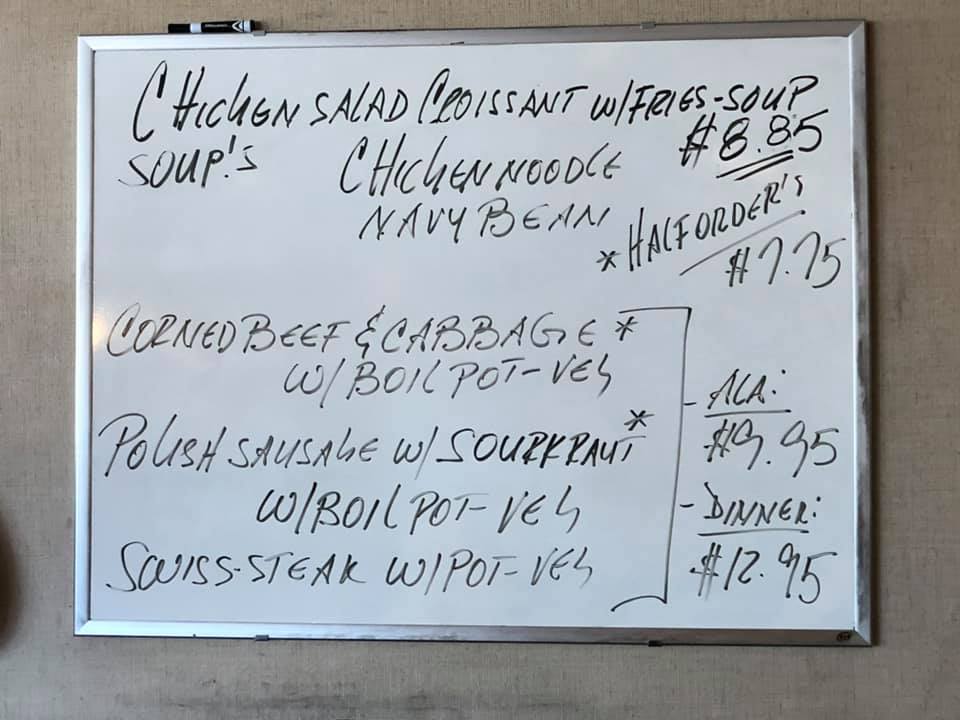 CHICKEN SALAD CROISSANT W/FRIES-SOUP
$8.85
SOUP'S CHICKEN NOODLE
NAVY BEAN
* HALF ORDER'S
$7.75
CORNED BEEF & CABBAGE *
W/BOIL POT-VEG
POLISH SAUSAGE W/ SOURKRAUT *
W/BOIL POT-VEG
SWISS-STEAK W/POT-VEG
- ALA:
$9.95
- DINNER:
$12.95